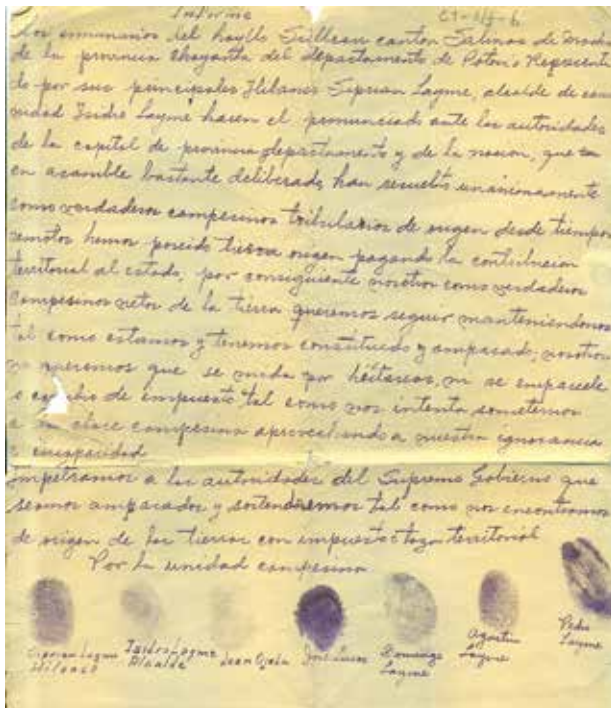 Informe
Los comunarios del hayllo Sullcan canton Salinas de
de la provincia chayanta del departamento de Potosi Represent
do por sus principales Hilanco Siprian Layme, alcalde de com
nidad Isidro Layme hasen el pronunciado ante las autoridades
de la capital de provincia departamento y de la nacion, que
en asamble bastante deliberado han resuelto unanimamente
como verdaderos campesinos tributarios de origen desde tiempos
remotos hemos poseido tierra origen pagando la contribucion
territorial al estado, por consiguiente nosotros como verdaderos
campesinos netos de la tierra queremos seguir manteniendonos
tal como estamos y tenemos constituido y amparado, nosotros
no queremos que se mida por héctareas, ni se emparcele
cambio de impuesto tal como nos intenta someternos
a la clase campesina aprovechando a nuestra ignorancia
e incapacidad.
Impetramos a las autoridades del Supremo Gobierno que
seamos amparados y sostendremos tal como nos encontramos
de origen de las tierras con impuesto taza territorial
Por la unidad campesina
Ciprian Layme Hilanco
Isidro Layme Alcalde
Juan
José Lucas
Domingo Layme
Agustin Layme
Pedro Layme